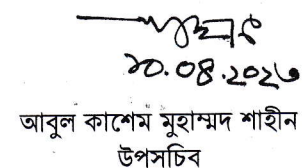 ১০.০৪.২০২৩
আবুল কাশেম মুহাম্মদ শাহীন
উপসচিব